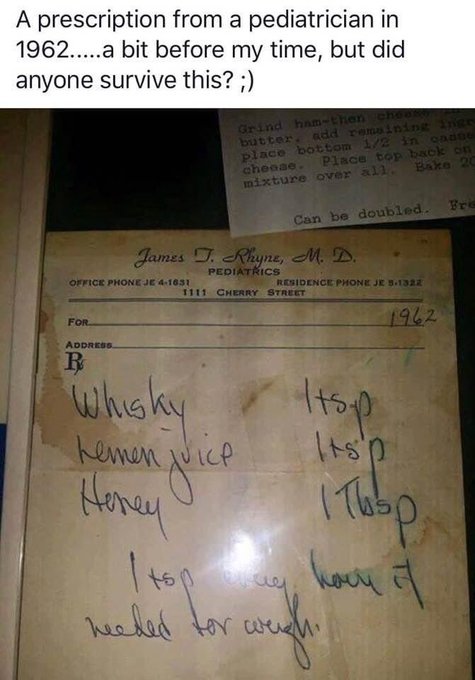 A prescription from a pediatrician in
1962.....a bit before my time, but did
anyone survive this? ;)
Grind ham-then cheese
butter, add remaining ingr
place bottom 1/2 in
cheese. Place top back on
mixture over all. Bake 20
Can be doubled. Fre
James T. Rhyne, M. D.
PEDIATRICS
OFFICE PHONE JE 4-1631 RESIDENCE PHONE JE 5-1322
1111 CHERRY STREET
FOR 1962
ADDRESS
℞
Whisky 1 tsp
Lemon juice 1 tsp
Honey 1 Tbsp
1 tsp every hour if
needed for cough.